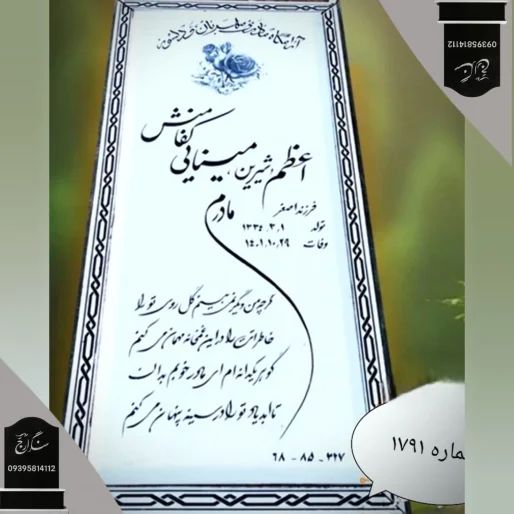 آرامگاه
اعظم (شیرین) مینایی کفامنش
فرزند اصغر
مادرم
تولد ۱۳۳۴.۳.۱
وفات ۱۴۰۱.۱۰.۲۹
گرچه من دیگر نمی‌بینم گل روی تو را
خاطراتت را در این غمخانه مهمان می کنم
گوهر یکدانه ام ای مادر خوبم بدان
تا ابد یاد تو را در سینه پنهان می کنم
۶۸ - ۸۵ - ۳۲۷
ماره ۱۷۹۱
09395814112
09395814112